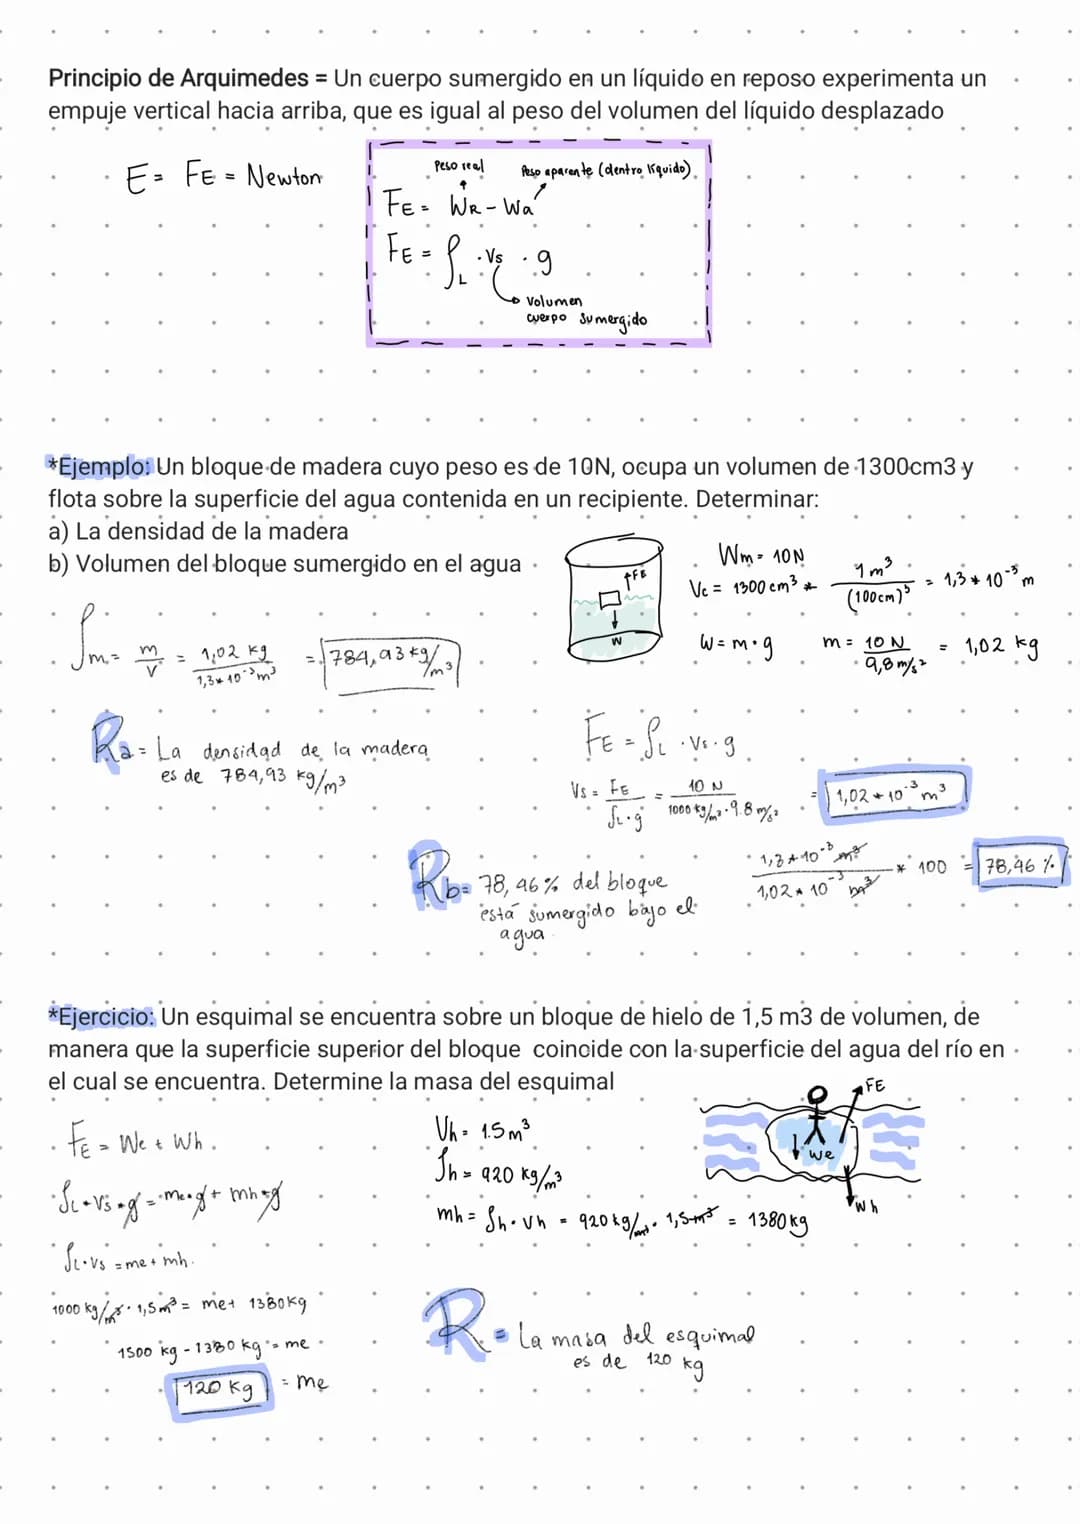 Principio de Arquimedes = Un cuerpo sumergido en un líquido en reposo experimenta un
empuje vertical hacia arriba, que es igual al peso del volumen del líquido desplazado
E = FE = Newton
Peso real
Peso aparente (dentro líquido)
FE = WR - Wa
FE = ρL · Vs · g
Volumen
cuerpo sumergido
*Ejemplo: Un bloque de madera cuyo peso es de 10N, ocupa un volumen de 1300cm3 y
flota sobre la superficie del agua contenida en un recipiente. Determinar:
a) La densidad de la madera
b) Volumen del bloque sumergido en el agua
FE
W
Wm = 10N
Vc = 1300 cm³ * 1m³/(100cm)³ = 1,3 * 10⁻³ m
W = m · g
m = 10 N/9,8 m/s² = 1,02 kg
ρm = m/V = 1,02 kg/1,3 * 10⁻³ m³ = 784,93 kg/m³
Ra = La densidad de la madera
es de 784,93 kg/m³
FE = ρL · Vs · g
Vs = FE/ρL · g = 10 N/1000 kg/m³ · 9.8 m/s² = 1,02 * 10⁻³ m³
1,3 * 10⁻³ m³/1,02 * 10⁻³ m³ * 100 = 78,46 %
Rb = 78,46 % del bloque
está sumergido bajo el
agua
*Ejercicio: Un esquimal se encuentra sobre un bloque de hielo de 1,5 m3 de volumen, de
manera que la superficie superior del bloque coincide con la superficie del agua del río en
el cual se encuentra. Determine la masa del esquimal
FE
We
Wh
FE = We + Wh
ρL * Vs * g = me * g + mh * g
ρL · Vs = me + mh
1000 kg/m³ · 1,5 m³ = me + 1380 kg
1500 kg - 1380 kg = me
120 kg = me
Vh = 1.5 m³
ρh = 920 kg/m³
mh = ρh · Vh = 920 kg/m³ · 1,5 m³ = 1380 kg
R = La masa del esquimal
es de 120 kg